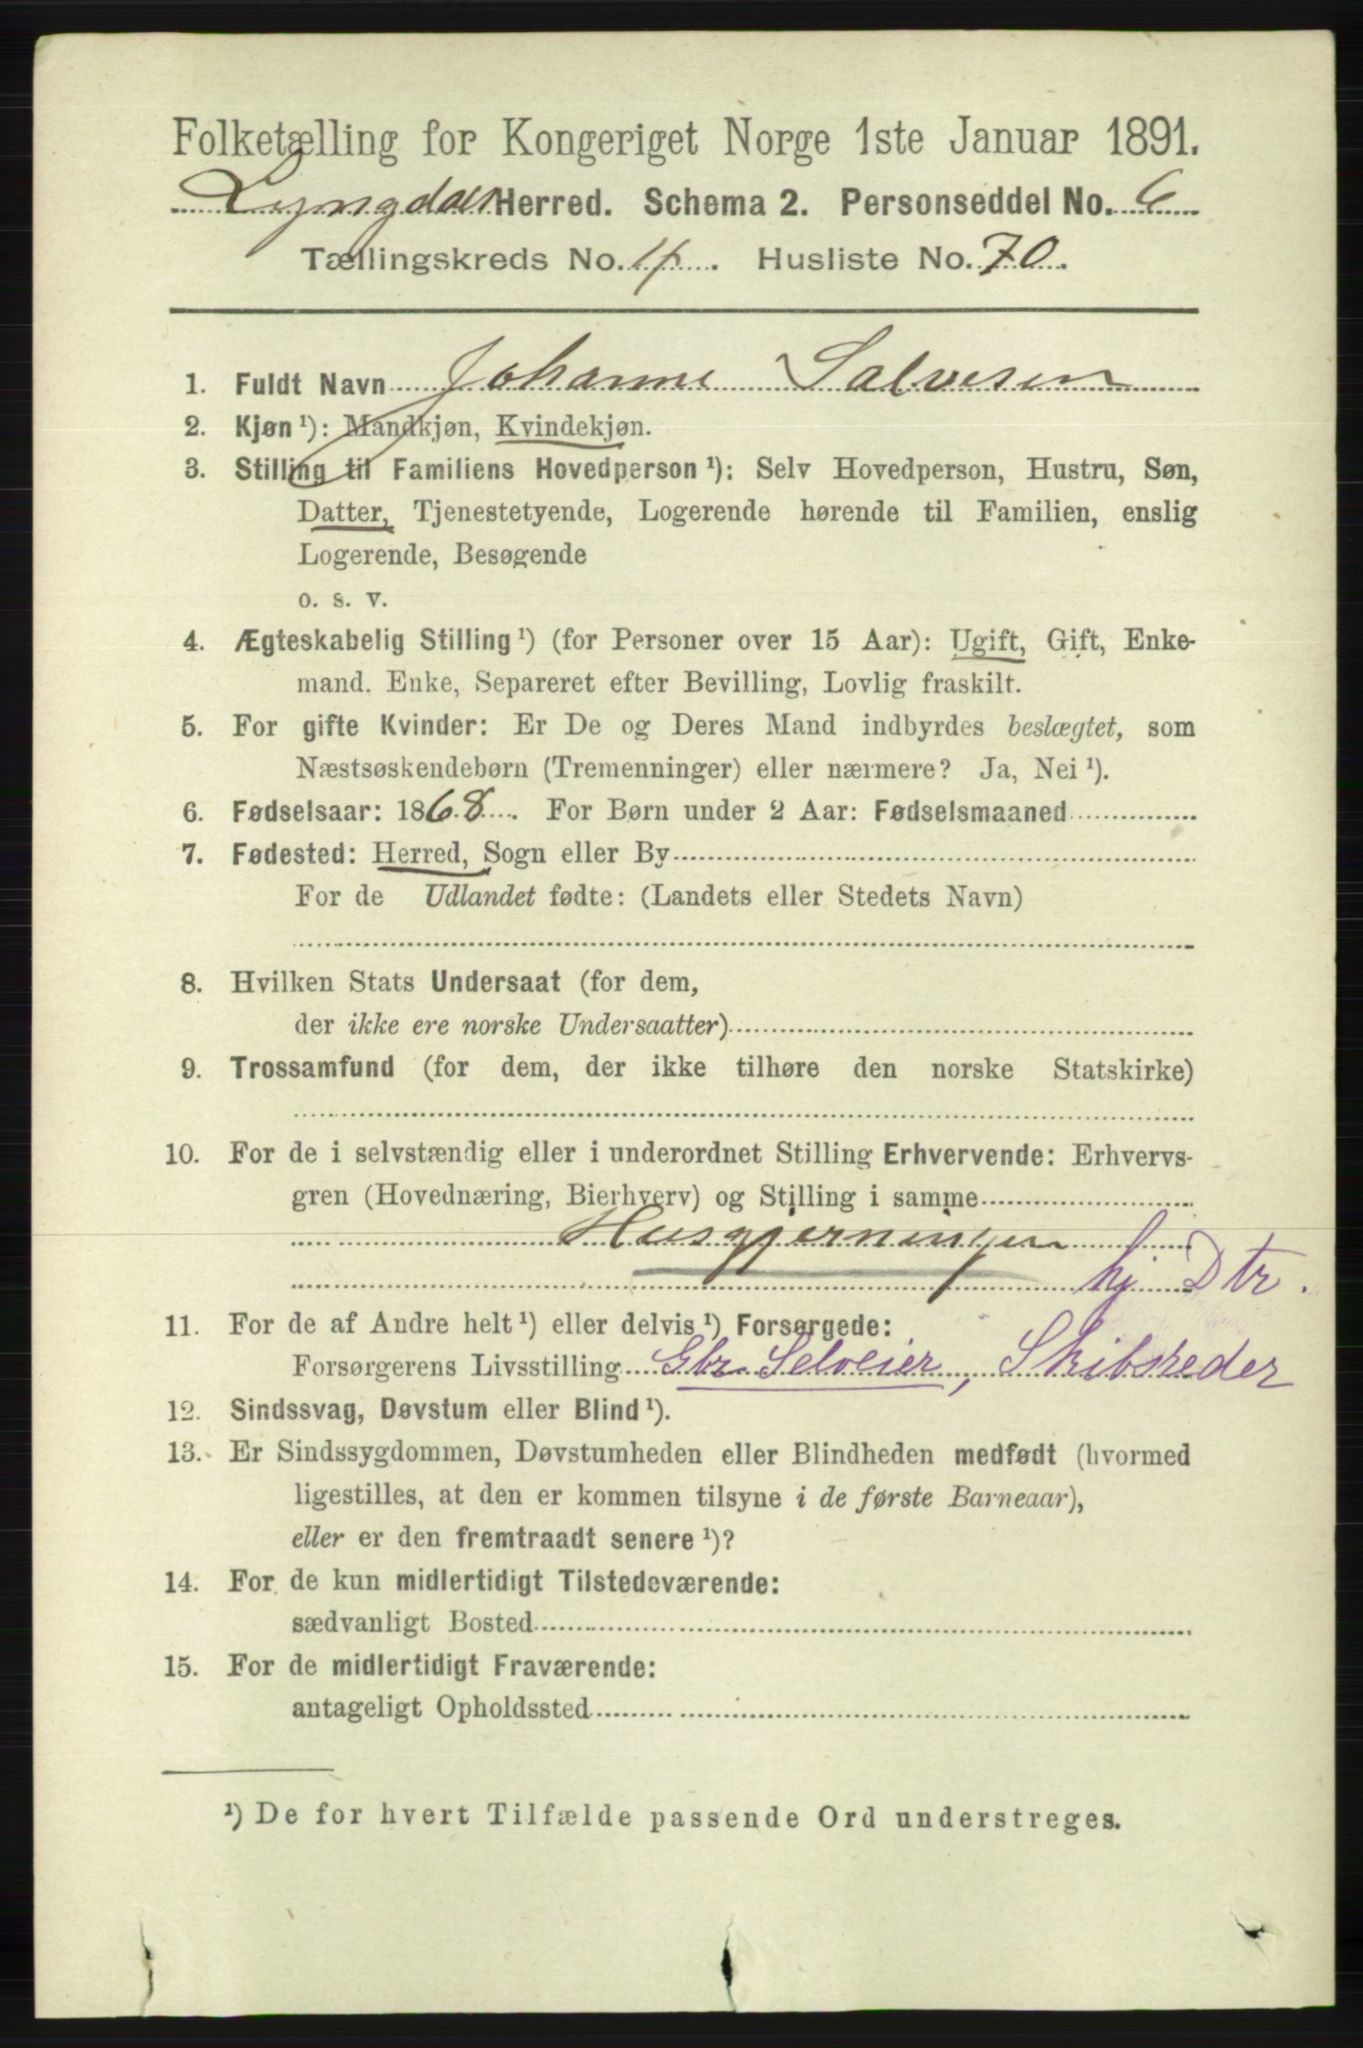 Folketælling for Kongeriget Norge 1ste Januar 1891.
Lyngdal Herred. Schema 2. Personseddel No. 6
Tællingskreds No. 4. Husliste No. 70.
1. Fuldt Navn Johanne Salvesen
2. Kjøn ¹): Mandkjøn, Kvindekjøn.
3. Stilling til Familiens Hovedperson ¹): Selv Hovedperson, Hustru, Søn,
Datter, Tjenestetyende, Logerende hørende til Familien, enslig
Logerende, Besøgende
o. s. v.
4. Ægteskabelig Stilling ¹) (for Personer over 15 Aar): Ugift, Gift, Enke-
mand, Enke, Separeret efter Bevilling, Lovlig fraskilt.
5. For gifte Kvinder: Er De og Deres Mand indbyrdes beslægtet, som
Næstsøskendebørn (Tremenninger) eller nærmere? Ja, Nei ¹).
6. Fødselsaar: 1868. For Børn under 2 Aar: Fødselsmaaned
7. Fødested: Herred, Sogn eller By
For de Udlandet fødte: (Landets eller Stedets Navn)
8. Hvilken Stats Undersaat (for dem,
der ikke ere norske Undersaatter)
9. Trossamfund (for dem, der ikke tilhøre den norske Statskirke)
10. For de i selvstændig eller i underordnet Stilling Erhvervende: Erhvervs-
gren (Hovednæring, Bierhverv) og Stilling i samme
Husgjerningen
hj Dtr.
11. For de af Andre helt ¹) eller delvis ¹) Forsørgede:
Forsørgerens Livsstilling Gbr. Selveier, Skibsreder
12. Sindssvag, Døvstum eller Blind ¹).
13. Er Sindssygdommen, Døvstumheden eller Blindheden medfødt (hvormed
ligestilles, at den er kommen tilsyne i de første Barneaar),
eller er den fremtraadt senere ¹)?
14. For de kun midlertidigt Tilstedeværende:
sædvanligt Bosted
15. For de midlertidigt Fraværende:
antageligt Opholdssted
¹) De for hvert Tilfælde passende Ord understreges.